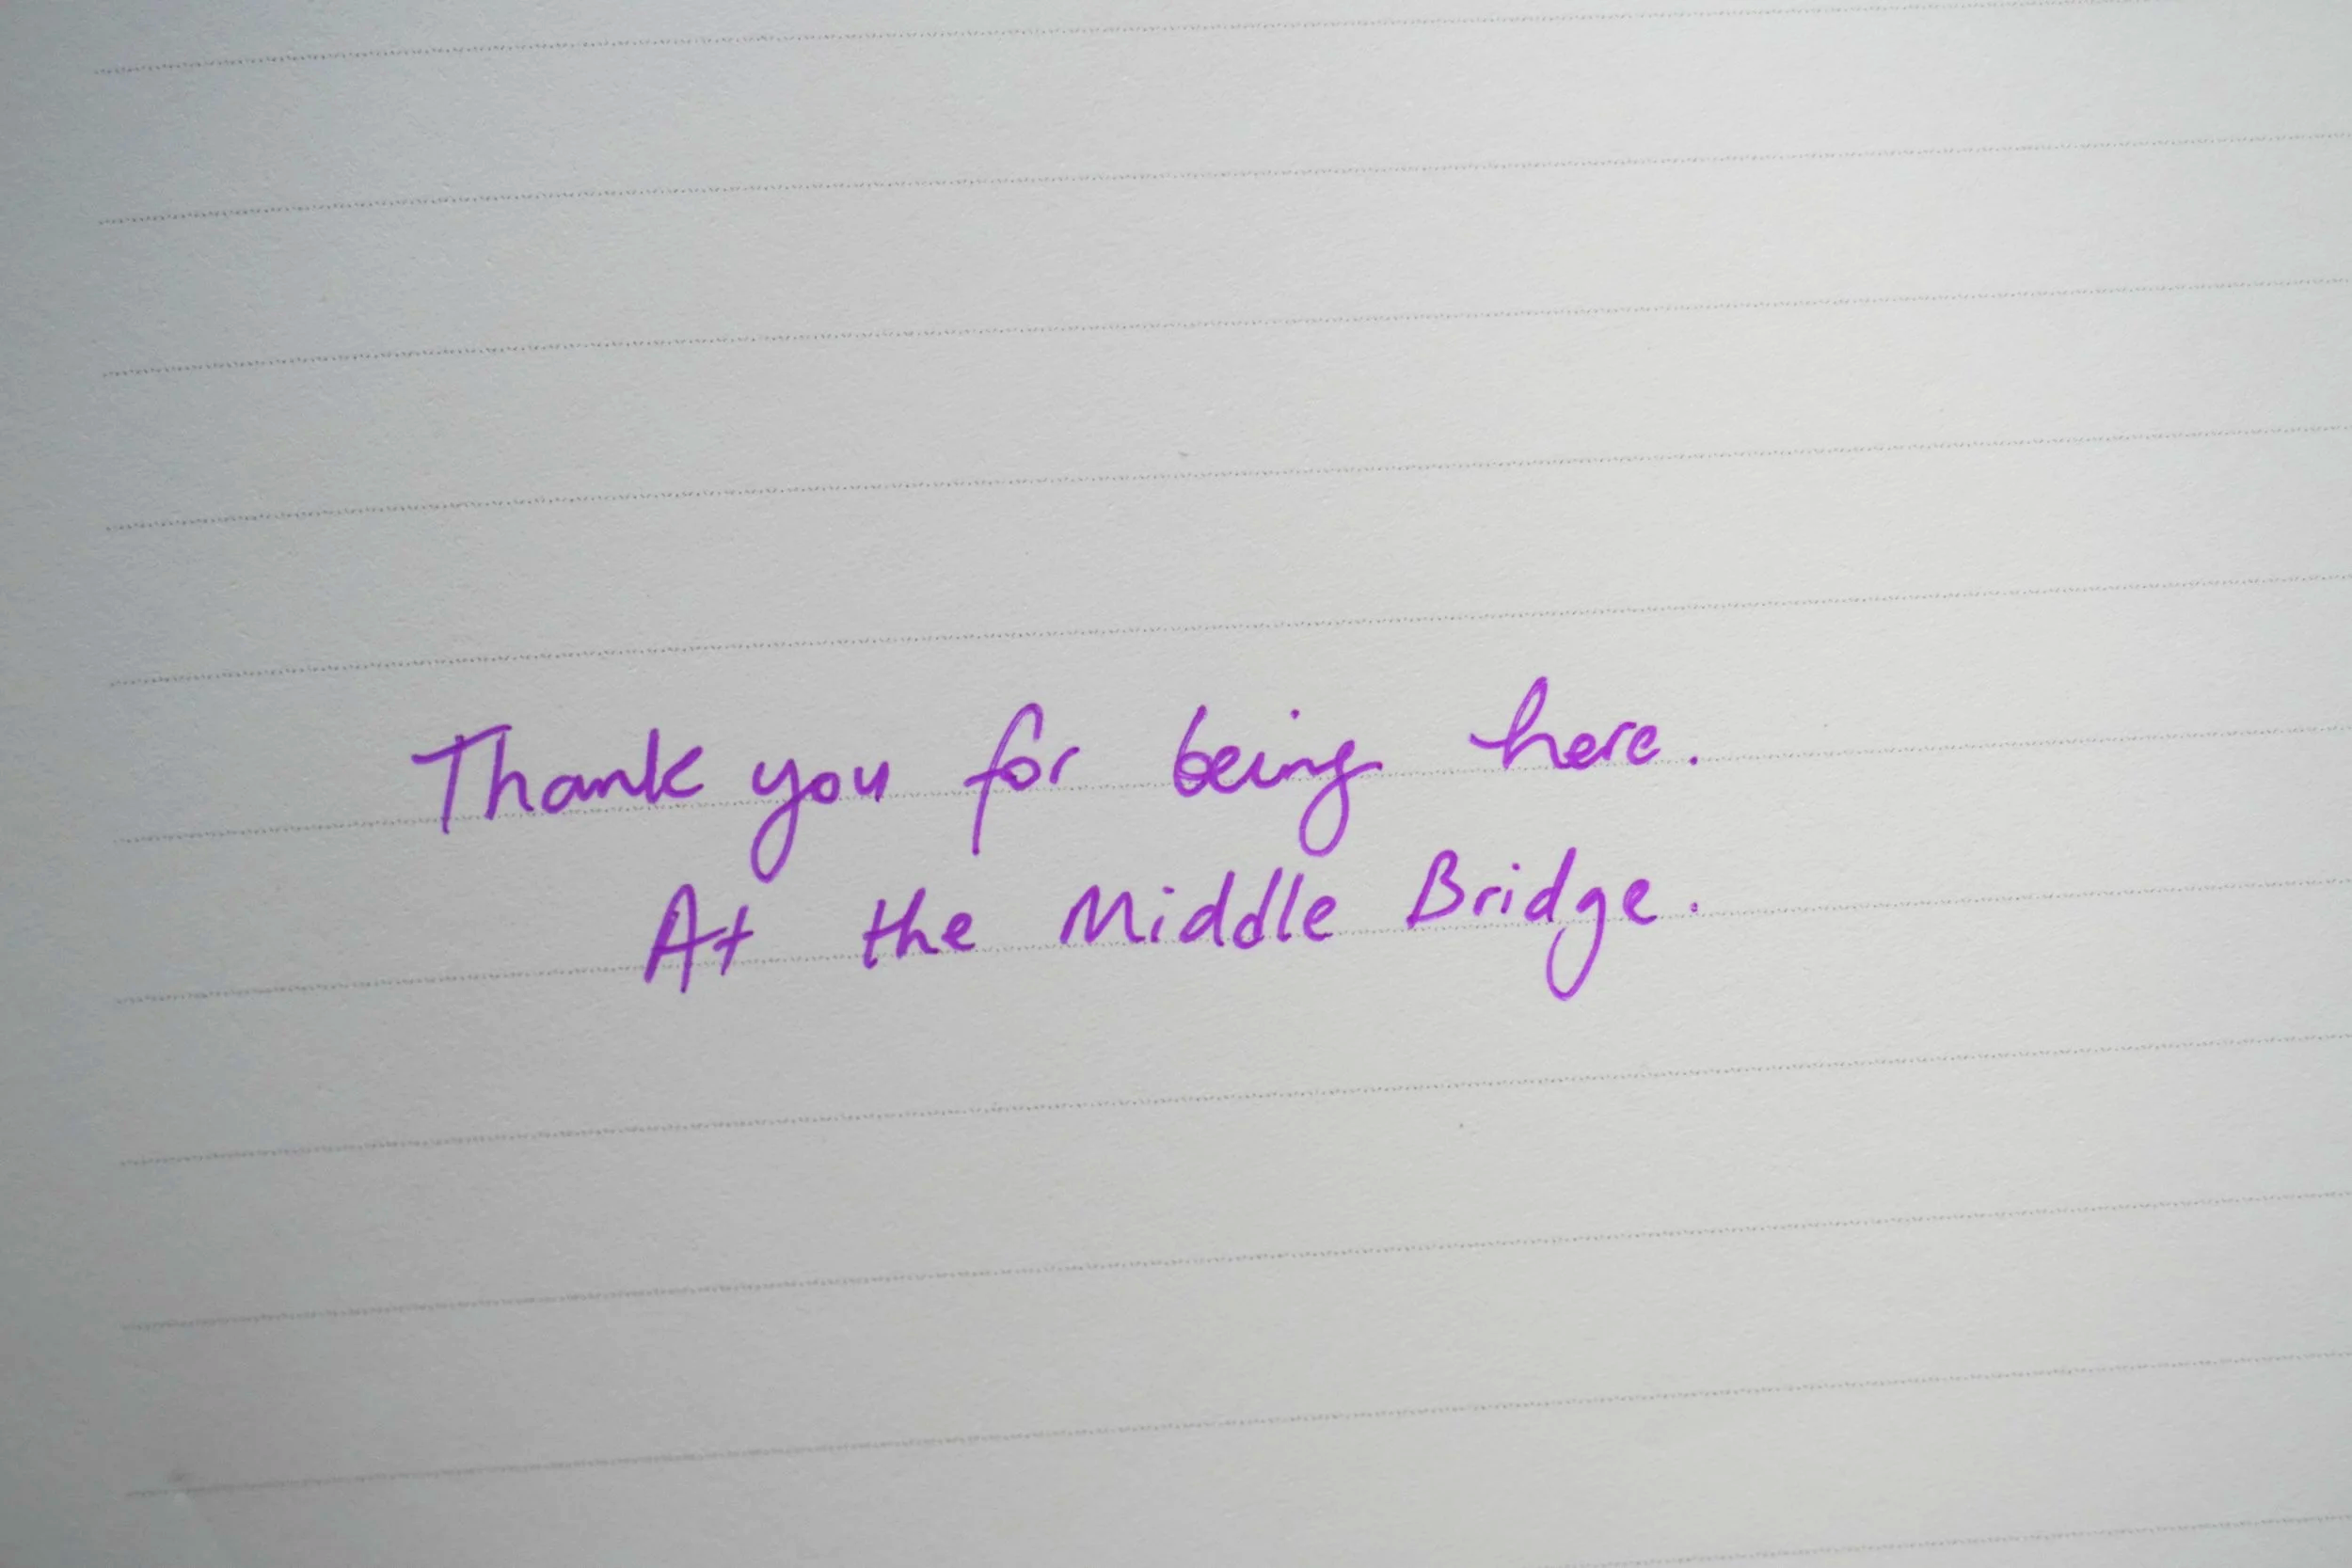 Thank you for being here.
At the Middle Bridge.